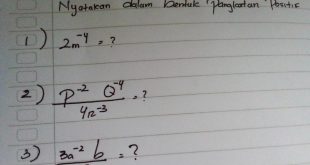 Nyatakan dalam bentuk pangkatan Positif
1) 2m⁻⁴ = ?
2) P⁻² Q⁻⁴ / 4R⁻³ = ?
3) 3a⁻² b = ?